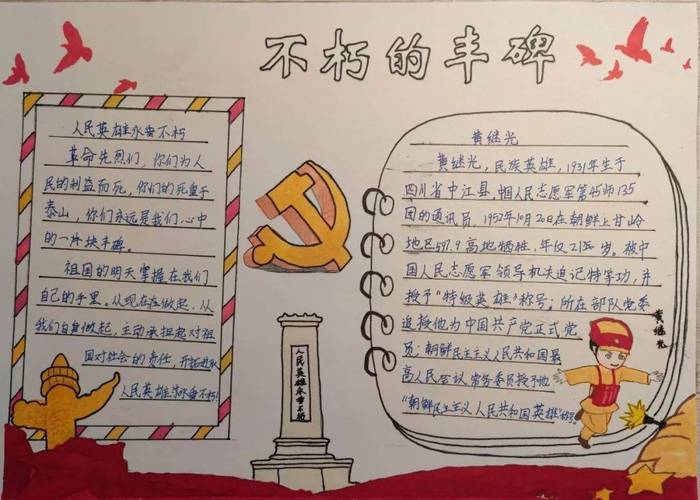 不朽的丰碑
人民英雄永垂不朽
革命先烈们，你们为人
民的利益而死，你们的死重于
泰山，你们永远是我们心中
的一块丰碑。
祖国的明天掌握在我们
自己的手里。从现在在做起、从
我们自身做起，主动承担起对祖
国对社会的责任，开拓进取
人民英雄永垂不朽！
人民英雄永垂不朽
黄继光
黄继光，民族英雄，1931年生于
四川省中江县，中国人民志愿军第45师135
团的通讯员，1952年10月20在朝鲜上甘岭
地区597.9高地牺牲，年仅21岁。被中
国人民志愿军领导机关追记特等功，并
授予"特级英雄"称号；所在部队党委
追授他为中国共产党正式党
员；朝鲜民主主义人民共和国最
高人民会议常务委员授予他
"朝鲜民主主义人民共和国英雄"称号。
黄继光